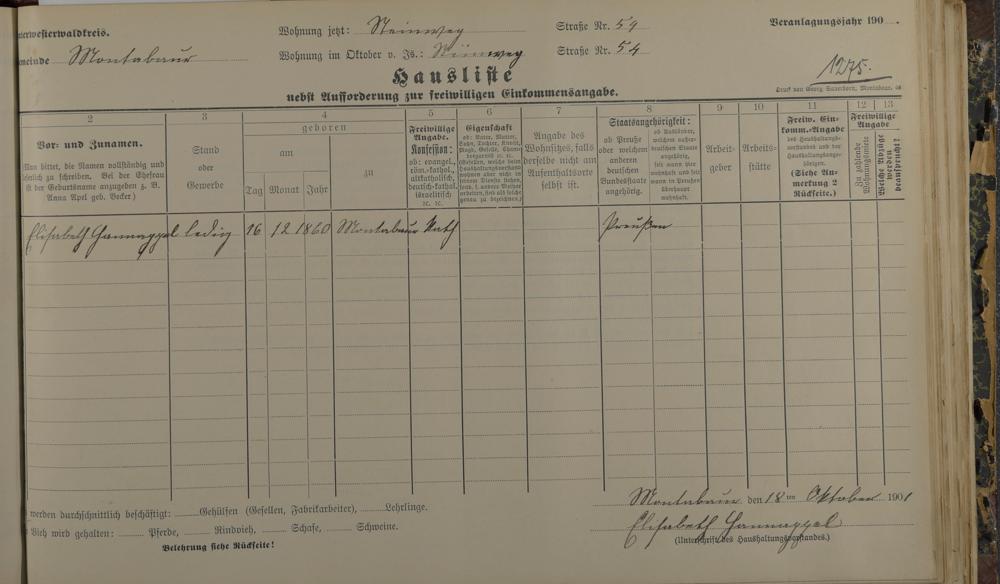 nterwesterwaldkreis.
Wohnung jetzt: Steinweg Straße Nr. 54
Veranlagungsjahr 190 .
meinde Montabaur
Wohnung im Oktober v. Js.: Steinweg Straße Nr. 54
1275.
Hausliste
Druck von Georg Sauerborn, Montabaur.
nebst Aufforderung zur freiwilligen Einkommensangabe.
2 3 4 5 6 7 8 9 10 11 12 13
Vor- und Zunamen.
Man bittet, die Namen vollständig und
deutlich zu schreiben. Bei der Ehefrau
ist der Geburtsname anzugeben z. B.
Anna Apel geb. Becker)
Stand
oder
Gewerbe
geboren
am
zu
Tag Monat Jahr
Freiwillige
Angabe.
Konfession:
ob: evangel.,
röm.-kathol.,
altkatholisch,
deutsch-kathol.
israelitisch
ec. ec.
Eigenschaft
ob: Vater, Mutter,
Sohn, Tochter, Knecht,
Magd, Geselle,
Angabe des
Wohnsitzes, falls
derselbe nicht am
Aufenthaltsorte
selbst ist.
Staatsangehörigkeit:
ob Preuße
oder welchem
anderen
deutschen
Bundesstaate
angehörig.
ob Ausländer,
welchem außer-
deutschen Staate
angehörig,
seit wann hier
wohnhaft und seit
wann in Preußen
überhaupt
wohnhaft.
Arbeit-
geber
Arbeits-
stätte
Freiw. Ein-
komm.-Angabe
des Haushaltungs-
vorstandes und der
Haushaltungsange-
hörigen.
(Siehe An-
merkung 2
Rückseite.)
Freiwillige
Angabe
Zu zahlende
Wohnungsmiete:
Welche Abzüge
werden
beansprucht?
Elisabeth Hannappel ledig 16 12 1860 Montabaur Kath Preußen
werden durchschnittlich beschäftigt: Gehülfen (Gesellen, Fabrikarbeiter), Lehrlinge.
Vieh wird gehalten: Pferde, Rindvieh, Schafe, Schweine.
Belehrung siehe Rückseite!
Montabaur den 18 ten Oktober 1901
Elisabeth Hannappel
(Unterschrift des Haushaltungsvorstandes.)